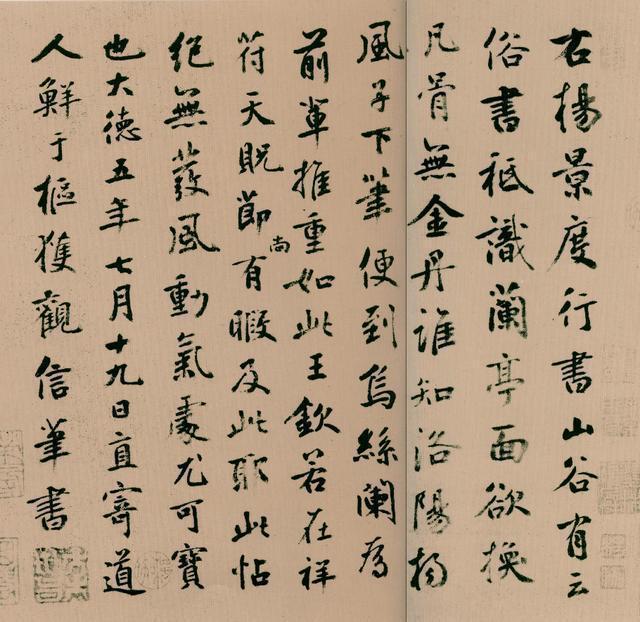 右楊景度行書山谷有云
俗書祗識蘭亭面欲換
凡骨無金丹誰知洛陽楊
風子下筆便到烏絲闌為
前輩推重如此王欽若在祥
符天貺節尚有暇及此耶此帖
絕無發風動氣處尤可寶
也大德五年七月十九日直寄道
人鮮于樞獲觀信筆書